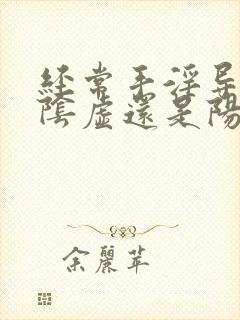 經常手淫是
陰虛還是陽
余麗苹